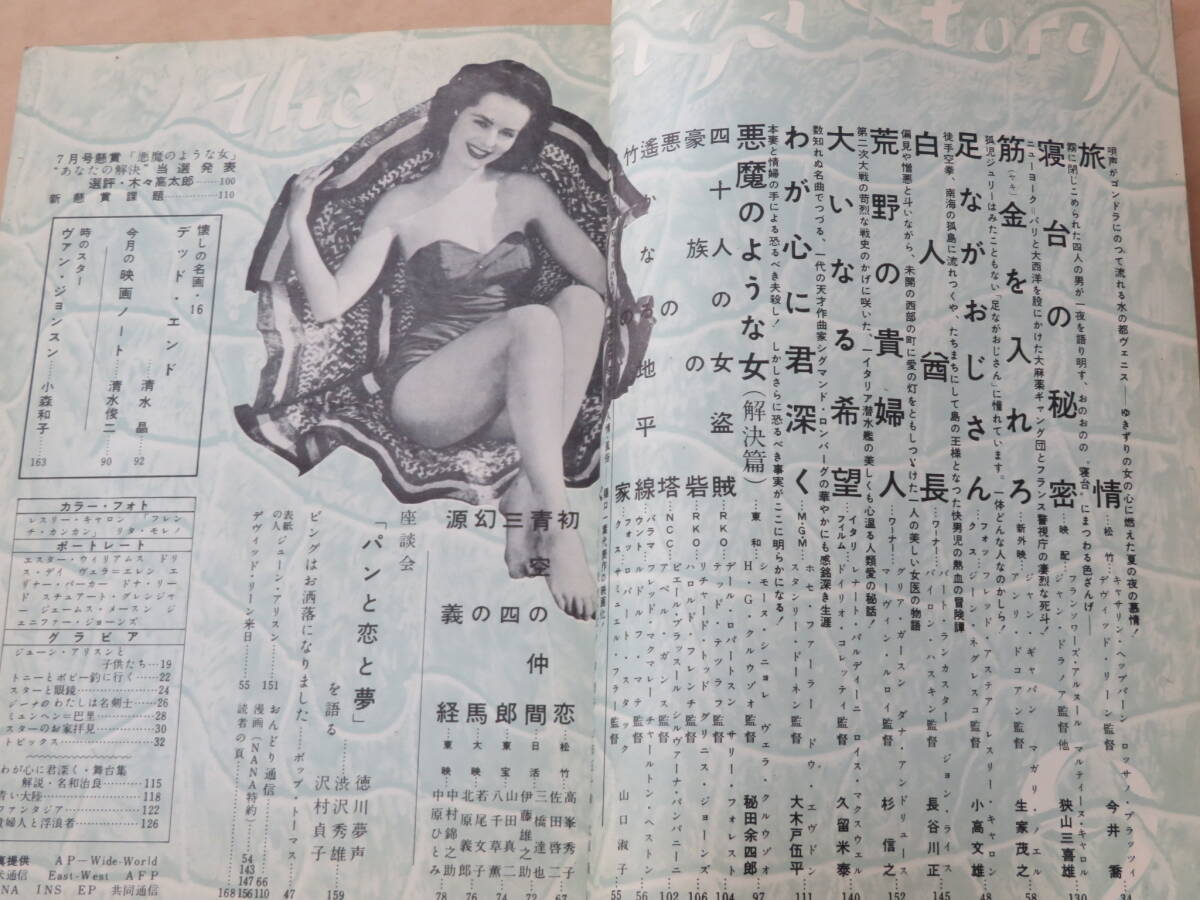 The
tory
旅情
唄声がゴンドラにのつて流れる水の都ヴェニス──ゆきずりの女の心に燃えた夏の夜の慕情！
松竹
キャサリン・ヘップバーン ロッサノ・ブラッツィ
デヴィッド・リーン監督
今井喬
34
寝台の秘密
霧に閉じこめられた四人の男が一夜を語り明す、おのおのの〝寝台〟にまつわる色ざんげ──
映配
フランソワーズ・アルヌール マルティーヌ・キャロル
ジャン・ドラノア監督他
狭山三喜雄
130
筋金を入れろ
(ヤキ)
ニューヨーク＝パリと大西洋を股にかけた大麻薬ギャング団とフランス警視庁の凄烈な死斗！
新外映
ジャン・ギャバン マガリ・ノエル
アンリ・ドコアン監督
生家茂之
58
足ながおじさん
孤児ジュリーはみたこともない「足ながおじさん」に憧れています。一体どんな人なのかしら！
フォックス
フレッド・アステア レスリー・キャロン
ジーン・ネグレスコ監督
小高文雄
48
白人酋長
徒手空拳、南海の孤島に流れつくや、たちまちにして島の王様となつた快男児の熱血の冒険譚
ワーナー
バート・ランカスター ジョン・ライス
バイロン・ハスキン監督
長谷川正
145
荒野の貴婦人
偏見や憎悪と斗いながら、未開の西部の町に愛の灯をともしつゞけた一人の美しい女医の物語
ワーナー
グリア・ガースン ダナ・アンドリュース
マーヴィン・ルロイ監督
杉信之
152
大いなる希望
第二次大戦の苛烈な戦史のかげに咲いた、一イタリア潜水艦の美しくも心温る人類愛の秘話！
イタリフィルム
レナート・バルディーニ ロイス・マクスウェル
ドイリオ・コレッティ監督
久留米泰
140
わが心に君深く
数知れぬ名曲でつづる、一代の天才作曲家シグマンド・ロンバーグの華やかにも感銘深き生涯
M・G・M
ホセ・フーラー ドウ・エヴドン
スタンリー・ドーネン監督
大木戸伍平
111
悪魔のような女(解決篇)
本妻と情婦の手による恐るべき夫殺し！ しかしさらに恐るべき事実がここに明らかになる！
東和
シモーヌ・シニョレ ヴェラ・クルウゾオ
H・G・クルウゾオ監督
秘田余四郎
97
四十人の女盗賊
RKO
デール・ロバートスン サリー・フォレスト
テッド・テツラフ監督
104
豪族の砦
RKO
リチャード・トッド グリニス・ジョーンズ
ハロルド・フレンチ監督
106
悪の塔
NCC
ピエール・ブラッスール シルヴァーナ・パンパニーニ
アベル・ガンス監督
102
遥かなる地平線
パラマウント
フレッド・マクマレー チャールトン・ヘストン
ルドルフ・マテ監督
56
竹の家
フォックス
ロバート・スタック 山口淑子
サミュエル・フラー監督
55
初恋
松竹
高峯秀子
佐田啓二
67
青空の仲間
日活
三橋達也
伊藤雄之助
72
三四郎
東宝
山田真二
八千草薫
幻の馬
大映
若尾文子
北原義郎
76
源義経
東映
中村錦之助
中原ひとみ
78
座談会
「パンと恋と夢」を語る
徳川夢声
渋沢秀雄
沢村貞子
159
ビングはお洒落になりました……ボッブ・トーマス
47
表紙の人 ジューン・アリスン……151
デヴィッド・リーン来日……55
おんどり通信
漫画(NANA特約)
読者の頁
54
143
147 66
168 156 110
7月号懸賞「悪魔のような女」
〝あなたの解決〟当選発表
選評・木々高太郎……100
新懸賞課題……110
懐しの名画・16
デッド・エンド……清水晶……92
今月の映画ノート……清水俊二……90
時のスター
ヴァン・ジョンスン……小森和子……163
カラー・フォト
レスリー・キャロン 「フレンチ・カンカン」 リタ・モレノ
ポートレート
エスター・ウィリアムス ドリス・デイ ヴェラ＝エレン エリナー・パーカー ドナ・リード スチュアート・グレンジャー ジェームス・メースン ジェニファー・ジョーンズ
グラビア
ジューン・アリスンと
子供たち…19
トニーとボビー釣に行く……22
スターと眼鏡……24
ジーナのわたしは名剣士……26
ミュンヘン＝巴里……28
スターのお家拝見……30
トピックス……32
わが心に君深く・舞台集
解説・名和治良……115
青い大陸……118
ファンタジア……122
貴婦人と浮浪者……126
真提供 AP―Wide-World
米通信 East-West AFP
NA INS EP 共同通信